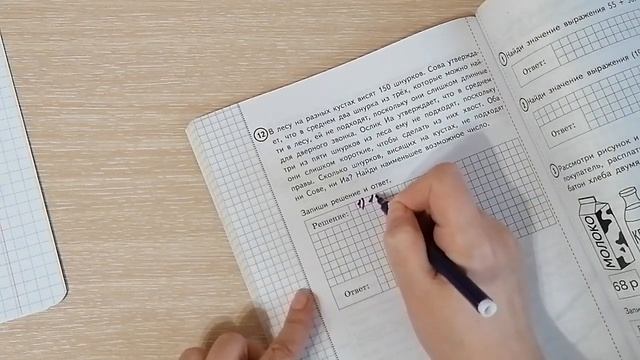 12 В лесу на разных кустах висят 150 шнурков. Сова утвержда-
ет, что в среднем два шнурка из трёх, которые можно най-
ти в лесу, ей не подходят, поскольку они слишком длинные
для дверного звонка. Ослик Иа утверждает, что в среднем
три из пяти шнурков из леса ему не подходят, поскольку
они слишком короткие, чтобы сделать из них хвост. Оба
правы. Сколько шнурков, висящих на кустах, не подходят
ни Сове, ни Иа? Найди наименьшее возможное число.
Запиши решение и ответ.
Решение:
Ответ:
1 Найди значение выражения 55 +
Ответ:
Найди значение выражения
Ответ:
Рассмотри рисунок
покупатель, распла
батон хлеба двумя
МОЛОКО
68 р